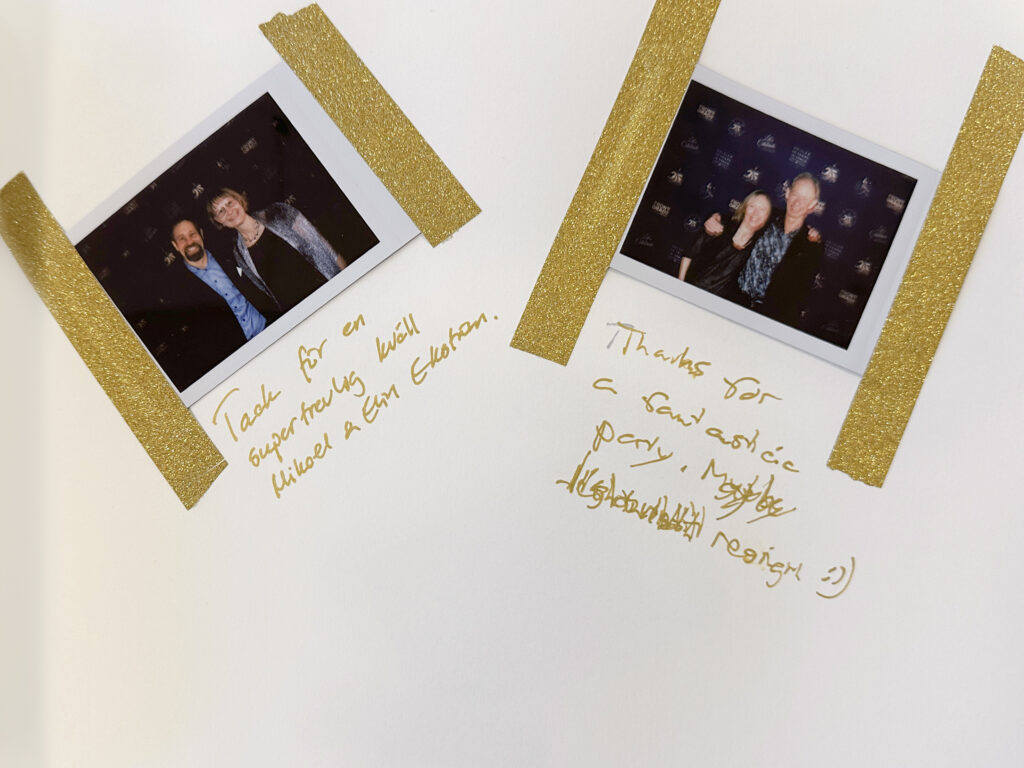 Tack för en
supertrevlig kväll
Mikael & Elin Ekotran.
Thanks for
a fantastic
party. Maybe
resign :))